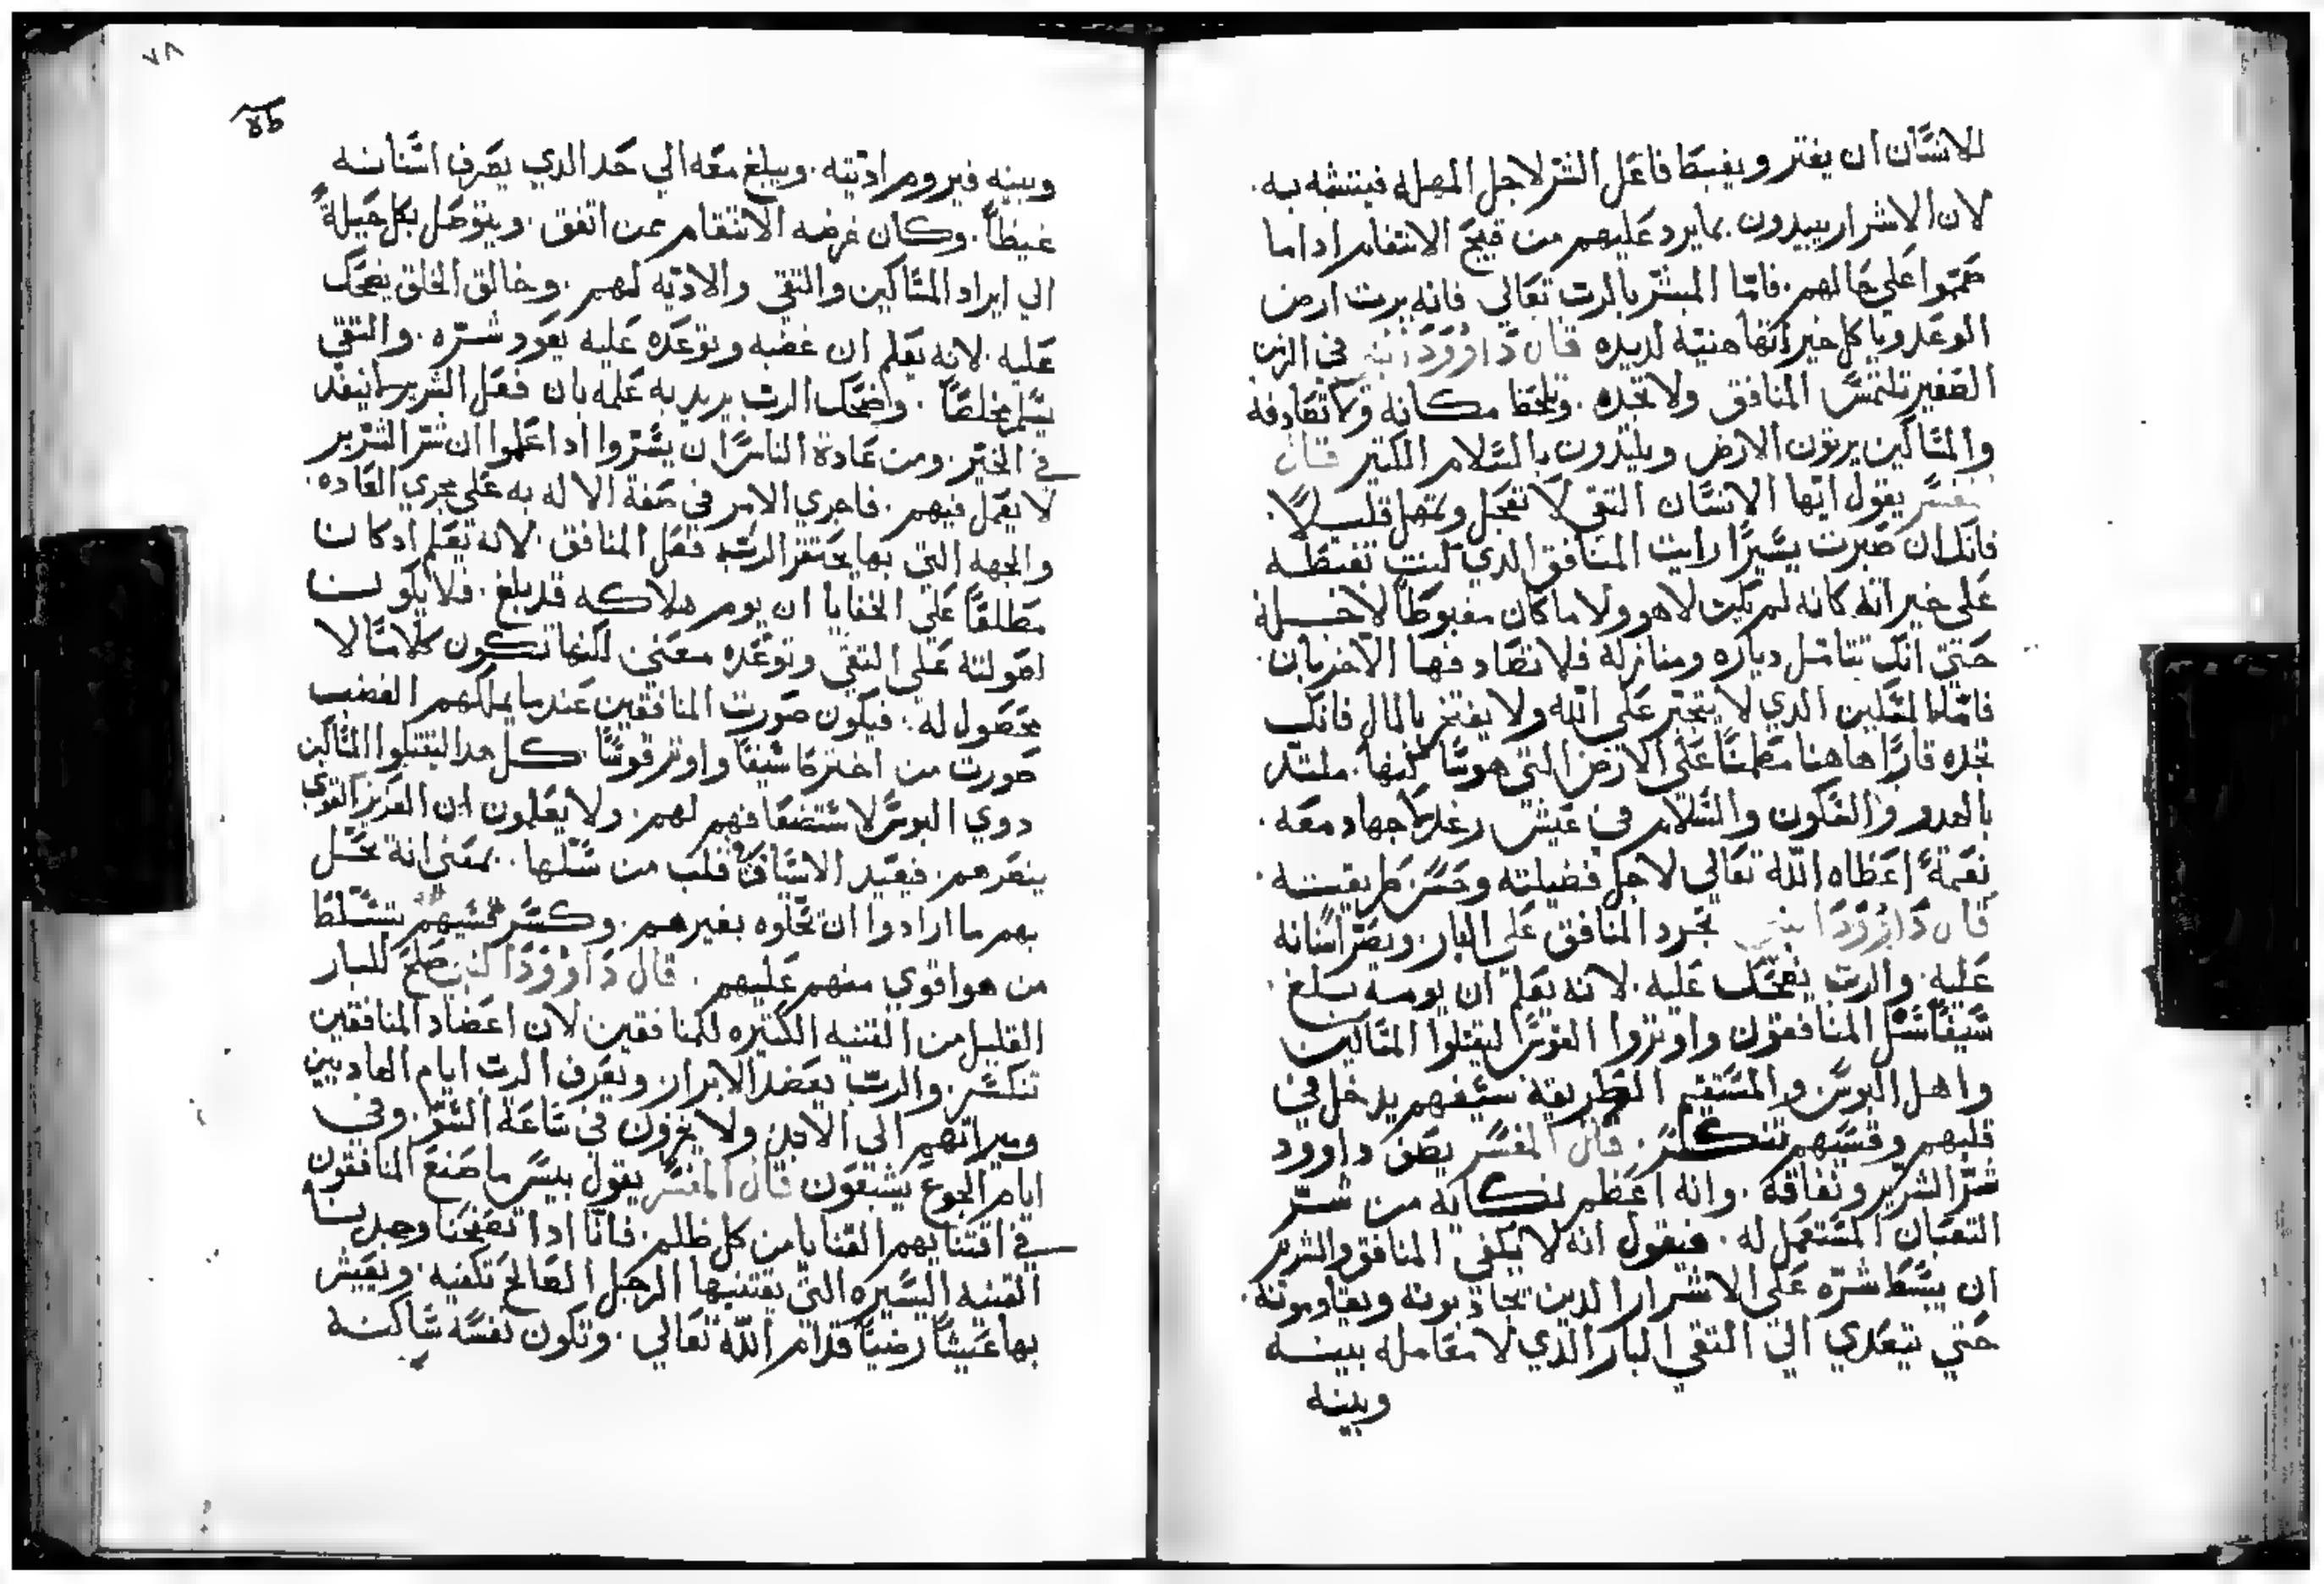 للانسان ان يغتر ويغبط فاعل الشر لاجل المهله فيتشبه به.
لان الاشرار يبيدون. بما يرد عليهم من قبح الانتقام اذا ما
صمموا علي حالهم. فامّا المبشر بالرب تعالي فانه يرث ارض
الوعد ويا كل خيراتها هنيّه لديده قال داوود النبي في الزمن
الصغير تلتمس المنافق ولا تجده. وتلحظ مكانه ولا تصادفه
والمساكين يرتون الارض ويلتدون بالسلام الكتير قال
المفسر يقول ايها الانسان التقي لا تعجل وتمهل قليلاً.
فانك ان صبرت يسيرًا رايت المنافق الدي كنت تغبطه
علي خيراته كانه لم يكن لا هو ولا ما كان مغبوطاً لاجله
حتي انك تتامل دياره ومنازله فلا تصادفها الا خربان.
فامّا المسكين الدي لا يتجبّر علي الله ولا يفتخر بالمال فانك
تجده قارًا هاهنا مطمئنًا علي الارض التي هو ساكنها. ملتد
بالهدو والسكون والسلام في عيش رغد لا جهاد معه.
نعمةً اعطاه الله تعالي لاجل فضيلته وحسن طريقته.
قال داوود النبي تجرد المنافق علي البار. ويصرّ اسنانه
عليه. والرب يضحك عليه. لانه يعلم ان يومه يبلغ.
سيفًا سل المنافقون واوتروا القوس ليقتلوا المساكين
واهل البوس والمستقيم الطريقه سيفهم يدخل في
قلبهم وقسيهم تنكسر. قال المفسر يصف داوود
شرّ الشرّير ونفاقه. وانه اعظم نكايه من شرّ
التعبان المستعمل له. فيقول انه لا يكفي المنافق والشرير
ان يبسط شرّه علي الاشرار الدين يجادبونه ويقاومونه.
حتي يتعدي الي التقي البار الدي لا معامله بينه
وبينه
٧٨
وبينه فيروم ادّيته. ويبلغ معه الي حد الدي يصرف اسنانه
غيظاً. وكان غرضه الانتقام ممن اتفق. ويتوصل بكل حيلةً
الي ايراد المساكين والتقي والاديّه لهم. وخالق الخلق يضحك
عليه. لانه يعلم ان غضبه وتوعده عليه يعود شرّه. والتقيّ
يسلم مخلصاً. واضحك الرب يريد به علمه بان فعل الشرير لا ينفد
في الخيّر. ومن عادة الناس ان يسرّوا ادا علموا ان شر الشرير
لا يعمل فيهم. فاجري الامر في صفة الاله به علي مجري العاده.
والجهه التي بها يحتقر الرب فعل المنافق. لانه يعلم اد كان
مطلقاً علي الخفايا ان يوم هلاكه قد بلغ. فلا يكون
لصولته علي التقي وتوعده معني لكنها تكون كلامًا لا
محصول له. فيكون صورت المنافقين عندما يملكهم الغضب
صورت من اخترط سيفاً واوتر قوسًا كل هدا ليقتلوا المساكين
دوي البوس لاستضعافهم لهم. ولا يعلمون ان العزيز القوي
ينصرهم. فيعيد الاسياف قلب من سلها. بمعني انه يحل
بهم ما ارادوا ان يحلوه بغيرهم. وكسر قسيهم يتسلط
من هو اقوي منهم عليهم. قال داوود النبي صلح للبار
القليل من القنيه الكتيره للمنافقين لان اعضاد المنافقين
تنكسر. والرب يعضد الابرار. ويعرف الرب ايام الهاديين
وميراتهم الي الابد. ولا يخزون في ساعة السّو. وفي
ايام الجوع يشبعون قال المفسر يقول بيسر ما صنع المنافقون
في اقتنايهم القنايا من كل ظلم. فانّا ادا تصفحنا وجدنا
القنيه اليسيره التي يقتنيها الرجل الصالح تكفيه. ويعيش
بها عيشاً رضيًا قدام الله تعالي. وتكون نفسه ساكنه